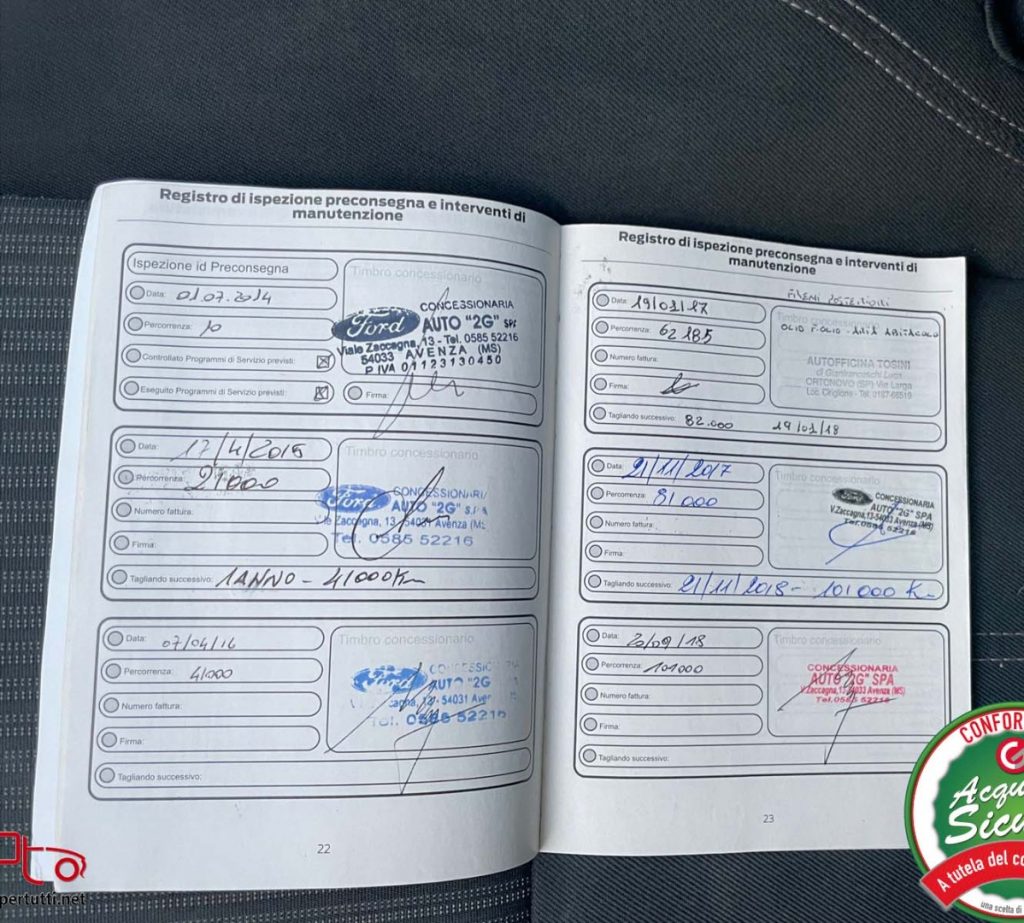 Registro di ispezione preconsegna e interventi di
manutenzione
Ispezione id Preconsegna
Timbro concessionario
Data: 01.07.2014
Percorrenza: 10
Controllato Programmi di Servizio previsti:
Eseguito Programmi di Servizio previsti:
Firma:
CONCESSIONARIA
Ford AUTO "2G" SPA
Viale Zaccagna, 13 - Tel. 0585 52216
54033 AVENZA (MS)
P. IVA 01123130450
Data: 17/4/2015
Percorrenza: 21000
Numero fattura:
Firma:
Tagliando successivo: 1 ANNO - 41000 Km
Timbro concessionario
CONCESSIONARI
Ford AUTO "2G" S.P.A
Zaccagna, 13 - 54031 Avenza (MS
Tel. 0585 52216
Data: 07/04/16
Percorrenza: 41000
Numero fattura:
Firma:
Tagliando successivo:
Timbro concessionario
Ford AUTO "2G
54031 Aven
Tel. 0585 52216
22
Registro di ispezione preconsegna e interventi di
manutenzione
Data: 19/01/17
Percorrenza: 62185
Numero fattura:
Firma:
Tagliando successivo: 82.000 19/01/18
FRENI POSTERIORI
Timbro
OLIO F.OLIO - ARIA ABITACOLO
AUTOFFICINA TOSINI
di Gianfranceschi Luca
ORTONOVO (SP) Via Larga
Data: 21/11/2017
Percorrenza: 81000
Numero fattura:
Firma:
Tagliando successivo: 21/11/2018 - 101000 K
Timbro concessionario
Ford CONCESSIONARIA
AUTO "2G" SPA
V.Zaccagna,13-54033 Avenza (MS)
Tel.0585 52216
Data: 20/09/18
Percorrenza: 101000
Numero fattura:
Firma:
Tagliando successivo:
Timbro concessionario
CONCESSIONARIA
AUTO "2G" SPA
V.Zaccagna,13-54033 Avenza (MS)
Tel.0585 52216
23
pertutti.net
CONFOR
Acqu
Sicu
A tutela del co
una scelta di